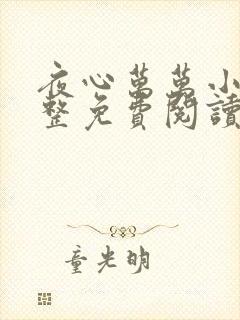 夜心萬萬小
整免費閱讀
童光明